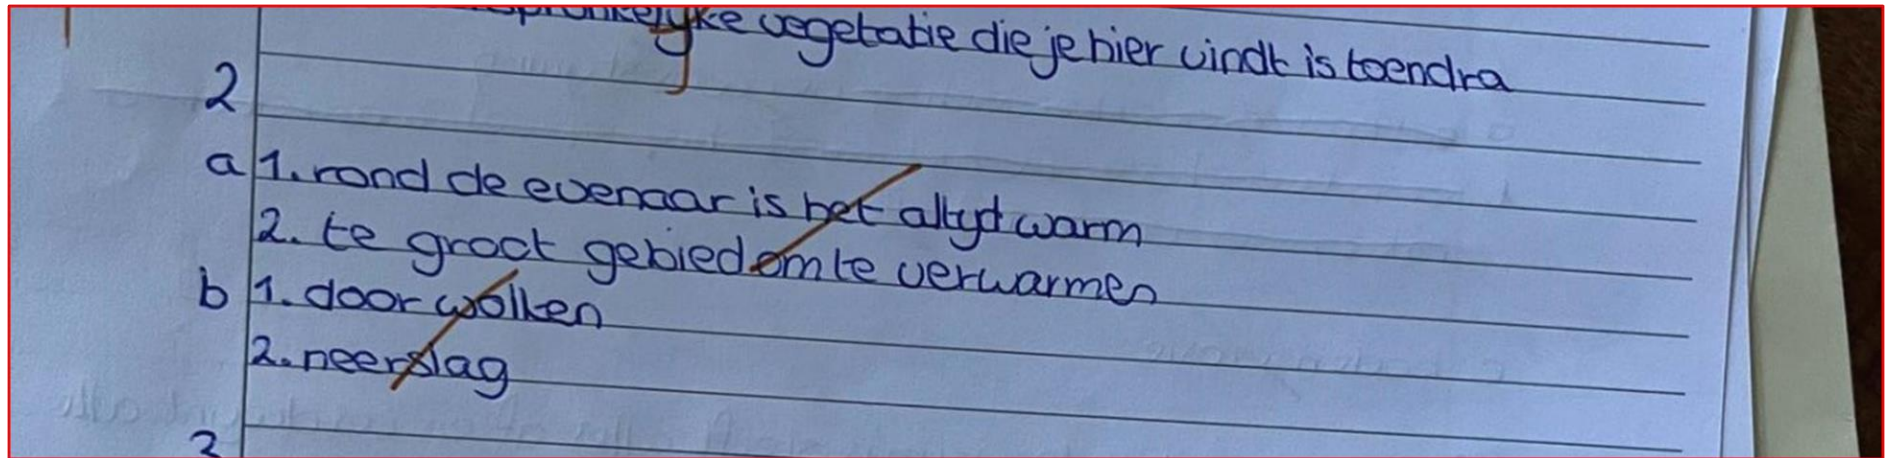 vegetatie die je hier vindt is toendra
2
a 1. rond de evenaar is het altyd warm
2. te groot gebied om te verwarmen
b 1. door wolken
2. neerslag
3